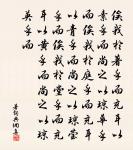 俟我於著乎而充耳以
素乎而尚之以瓊華乎
而俟我於庭乎而充耳
以青乎而尚之以瓊瑩
乎而俟我於堂乎而充
耳以黃乎而尚之以瓊
英乎而